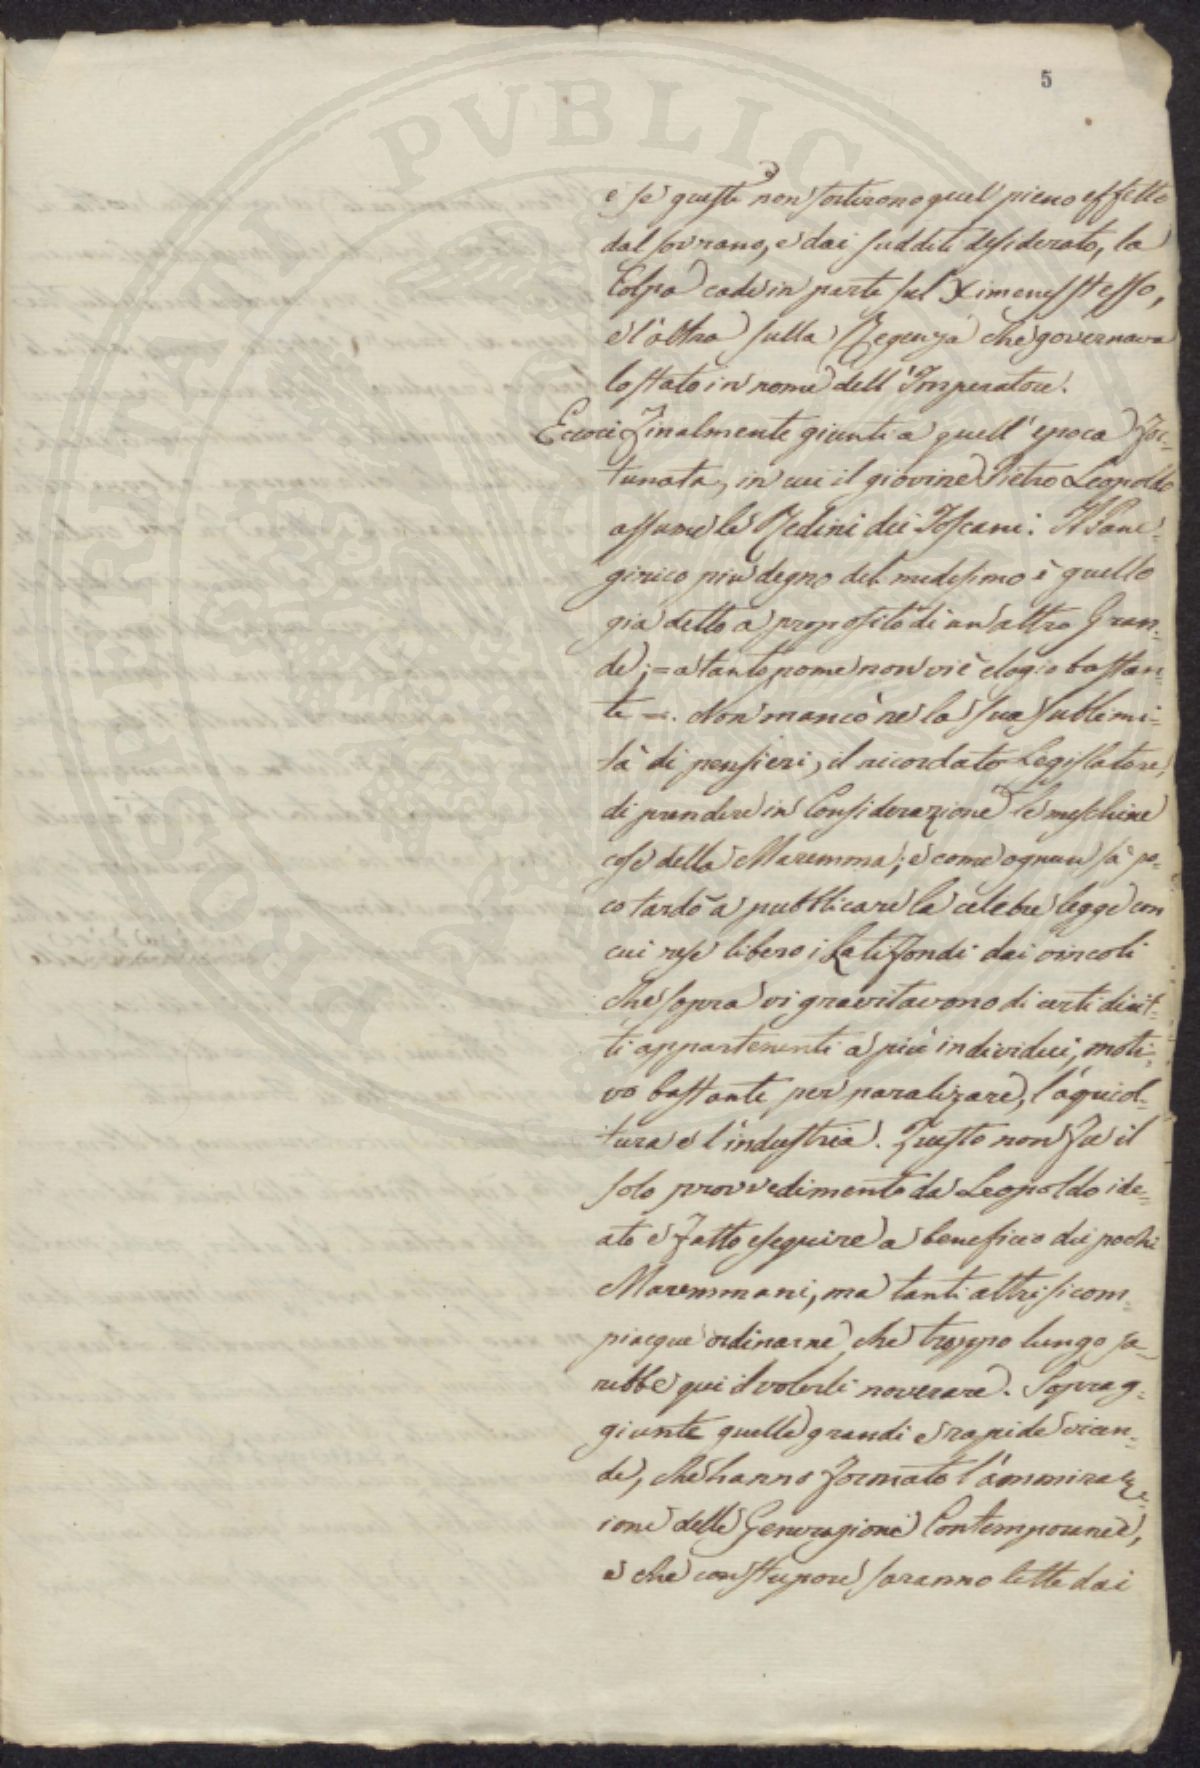 5
e se queste non sortirono quel pieno effetto
dal sovrano, e dai sudditi desiderato, la
Colpa cade in parte sul Ximenes stesso,
e l'altra sulla Regenza che governava
lo stato in nome dell'Imperatore.
Eccoci finalmente giunti a quell'epoca for-
tunata, in cui il giovine Pietro Leopoldo
assume le Redini dei Toscani. Il Pane-
girico più degno del medesimo è quello
già detto a proposito di un altro Gran-
de; = a tanto nome non vi è elogio bastan-
te =. Non mancò ne la sua sublimi-
tà di pensieri, il ricordato Legislatore,
di prendere in Considerazione le meschine
cose della Maremma; e come ognun sà po-
co tardò a pubblicare la celebre legge con
cui rese libero i Latifondi dai vincoli
che sopra vi gravitavono di certi dirit-
ti appartenenti a più individui, moti-
vo bastante per paralizare, l'agricol-
tura e l'industria. Questo non fu il
solo provvedimento da Leopoldo ide-
ato e fatto eseguire a beneficio dei pochi
Maremmani, ma tanti altri si com-
piacque ordinarne, che troppo lungo sa-
rebbe qui il volerli noverare. Soprag-
giunte quelle grandi e rapide vicen-
de, che hanno formato l'ammiraz-
ione delle Generazioni Contemporanee,
e che con stupore saranno lette dai
PROSPERITATI PVBLICAE